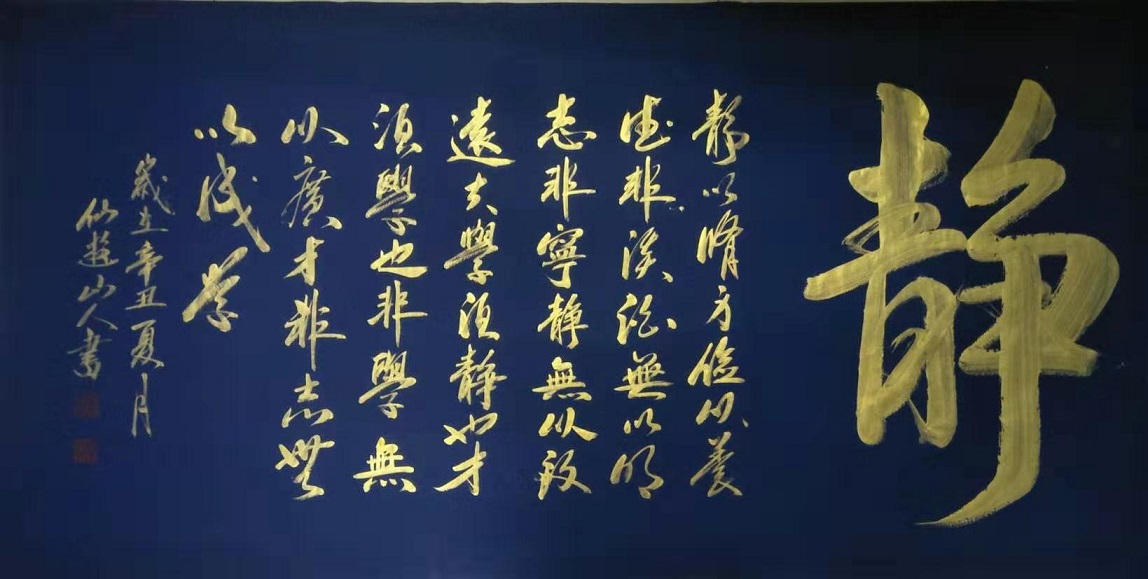 静
静以脩身儉以養
德非淡泊無以明
志非寧静無以致
遠夫學須静也才
須學也非學無
以廣才非志無
以成学
歲在辛丑夏月
仙遊山人書